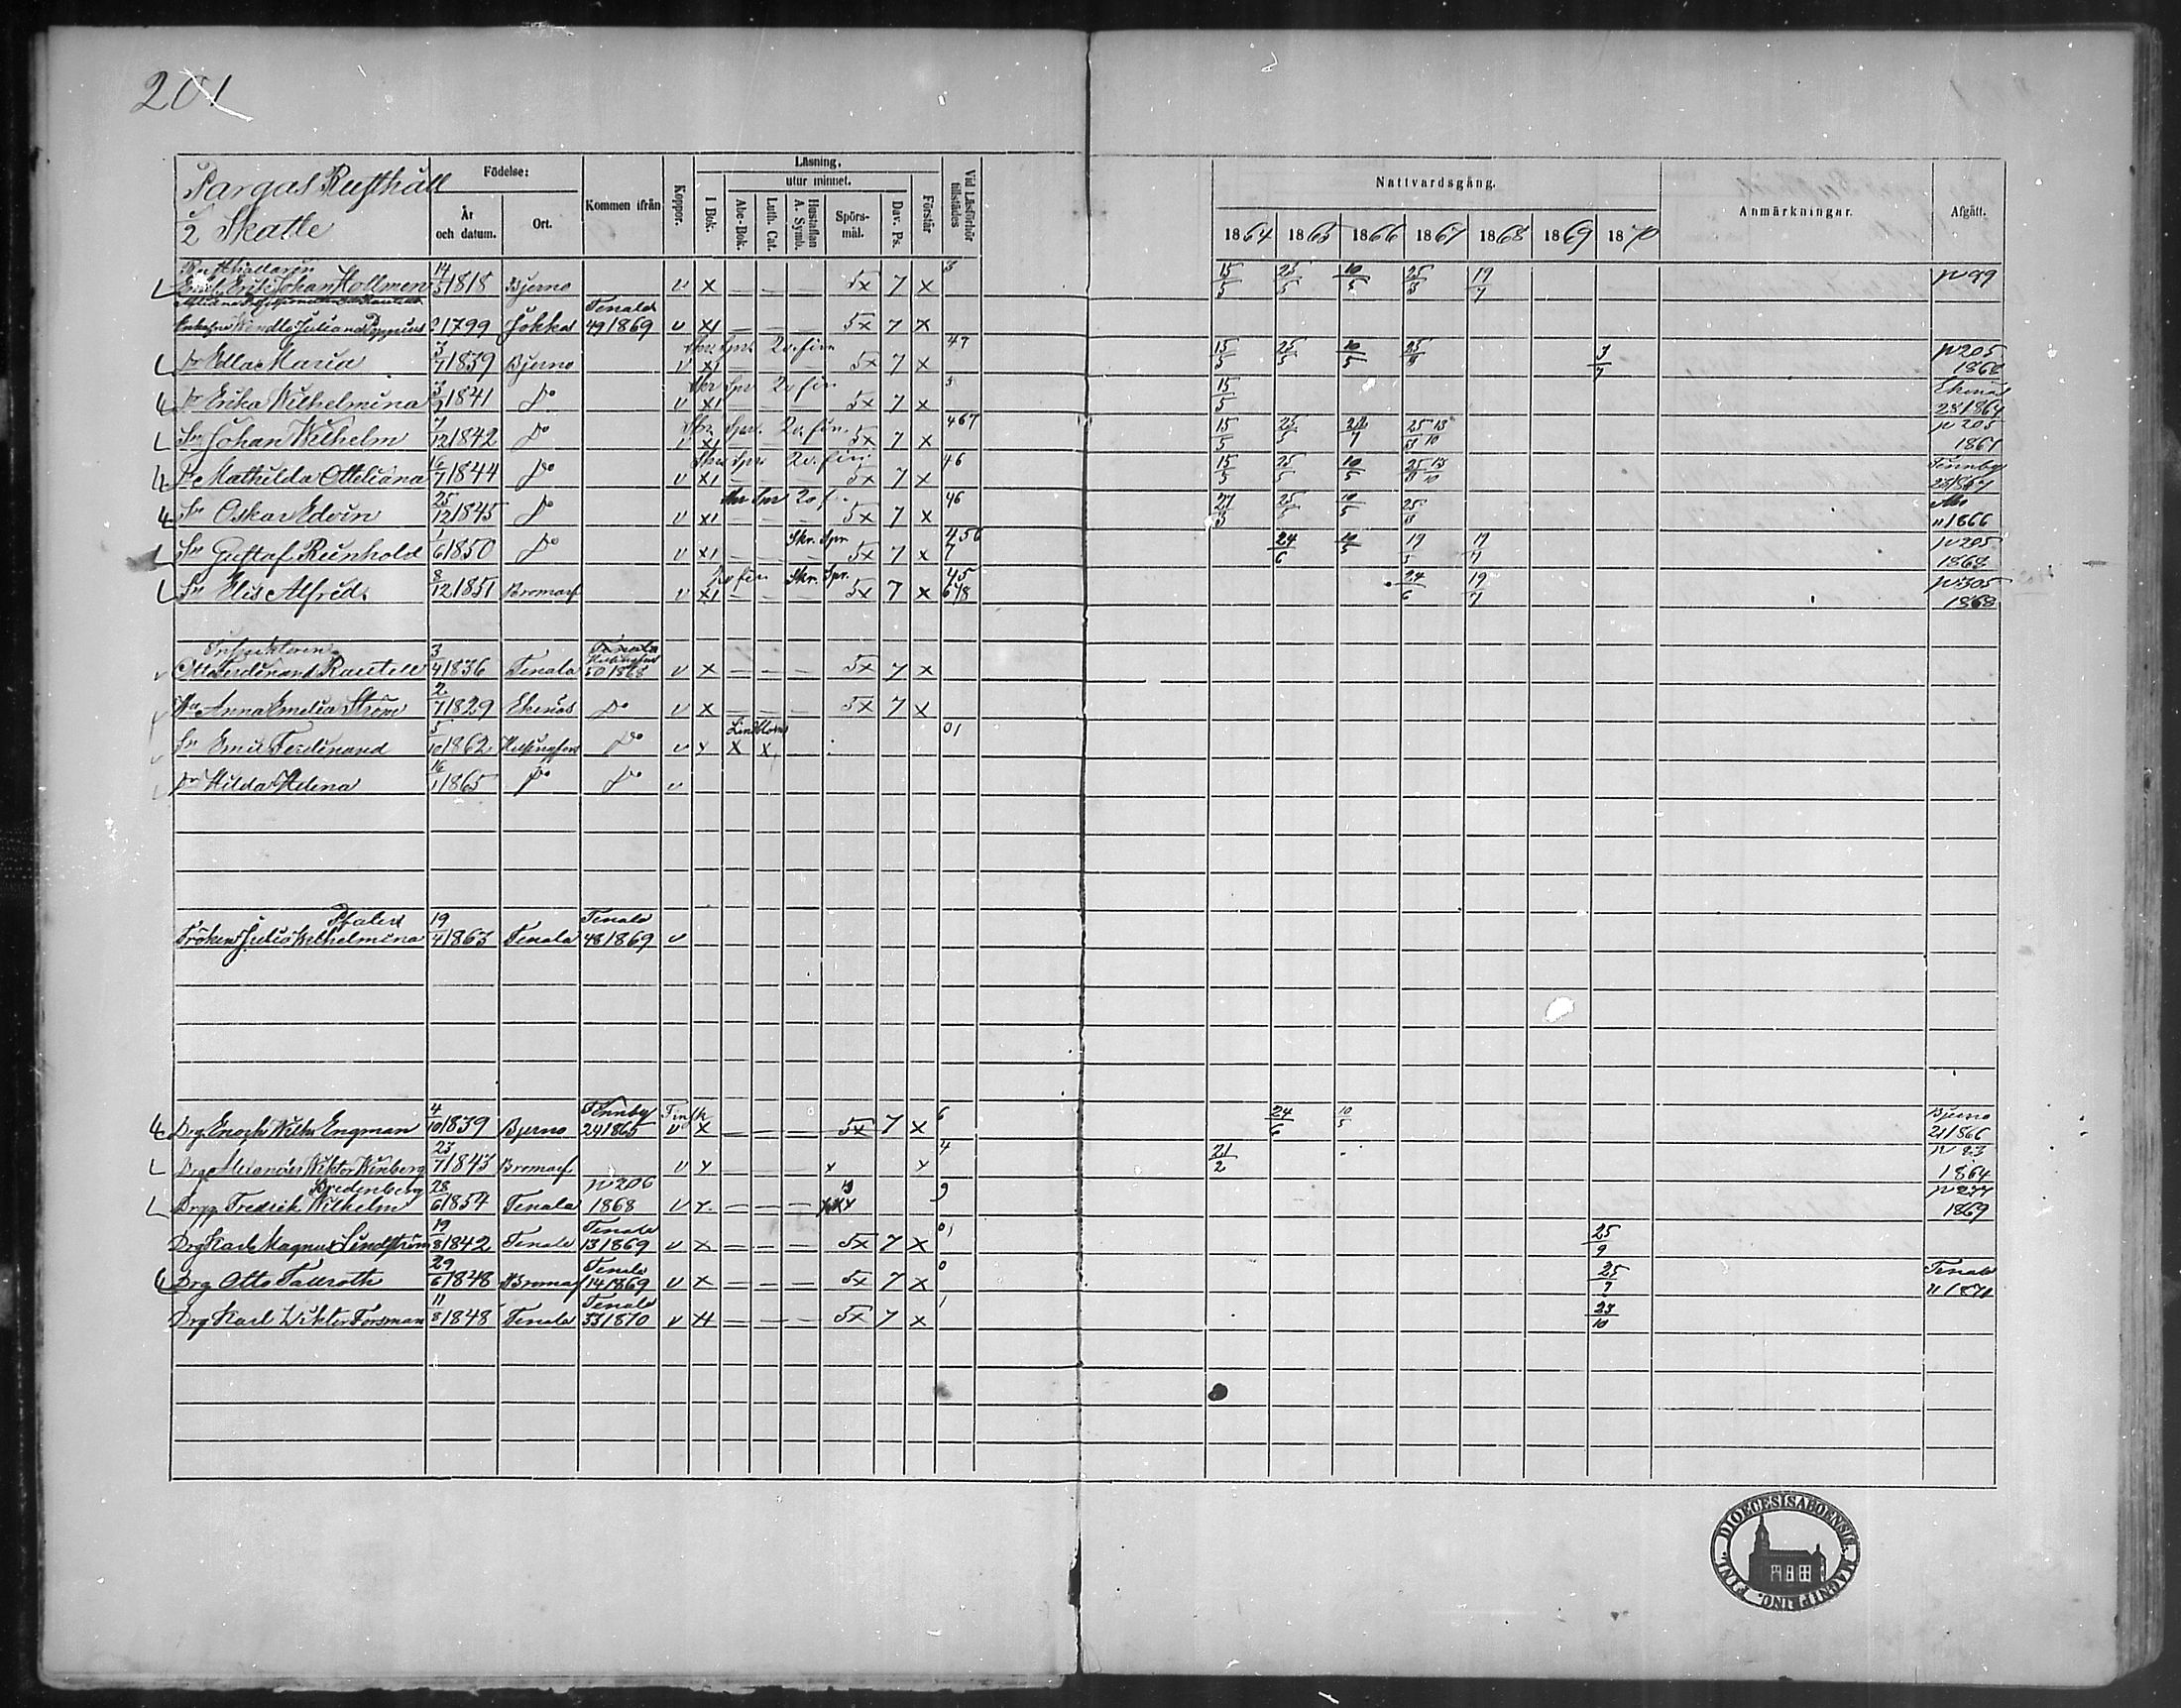 201
Pargas Rusthåll
2 Skatte
Födelse:
År och datum.
Ort.
Kommen ifrån
Koppor.
Läsning.
I Bok.
utur minnet.
Abc-Bok.
Luth. Cat.
Hustaflan A. Symb.
Spörs-mål.
Dav. Ps.
Förstår
Vid Läsförhör tillstädes
Nattvardsgång.
1864 1865 1866 1867 1868 1869 1870
Anmärkningar.
Afgått.
Rusthållaren 14 3
Erik Johan Hollmen 1818 Bjerno v x — — — 5x 7 x 15/5 25/5 10/5 25/5 19/7 p 99
Tenala
Juliana 1799 Jokkas 49 1869 v x1 — — — 5x 7 x
Skr. Spr. 2 v. fin 47
Dr Edla Maria 3/7 1839 Bjerno v x1 5x 7 x 15/5 25/5 10/5 25/5 3/7 p 205 1868
Skr Spr 2 v fin
Dr Erika Wilhelmina 1841 Do v x1 5x 7 x 15/5 Ekenäs 28 1864
Skr. Spr. 2 v. fin. 467
Sn Johan Wilhelm 7/12 1842 Do v x1 5x 7 x 15/5 25/5 22/7 25/5 13/10 p 205
Skr Spr 2 v. fin. 46
Dr Mathilda Otteliana 16/7 1844 Do v x1 5x 7 x 15/5 25/5 10/5 25/5 13/10 Finnby 23 1867
Skr Spr 2 v f. 46
Sn Oskar Edvin 25/12 1845 Do v x1 — — — 5x 7 x 25/5 10/5 25/5 Åbo 11 1866
Skr. Spr 456 7
Sn Gustaf Reinhold 1/6 1850 Do v x1 — — 5x 7 x 24/6 10/5 19/7 p 205 1868
2 v fin Skr. Spr. 45 678
Sn Elis Alfred 8/12 1851 Bromarf v x1 — — — 5x 7 x 24/6 19/7 p 305 1868
Inspektoren Tenala Helsingfors
Otto Ferdinand Rautell 3/4 1836 Tenala 50 1868 v x — — — 5x 7 x
Hu Anna Emelia Ström 2/7 1829 Ekenäs Do v x — — — 5x 7 x
01
Sn Emil Ferdinand 5/10 1862 Helsingfors Do v x x x
Dr Hilda Helena 16/1 1865 Do Do v
Pfaler Tenala
Fröken Julia Wilhelmina 19/4 1863 Tenala 48 1869 v
Finnby Finsk 6
Drg Enoch Wilh. Engman 4/10 1839 Bjerno 24 1865 v x — — — 5x 7 x 24/6 10/5 Bjerno 21 1866
4
Drg Alexander Wiktor Winberg 23/7 1843 Bromarf v x — — — x x 21/2 p 23 1864
Bredenberg p 206 9
Drg Fredrik Wilhelm 28/6 1854 Tenala 1868 v x — — — p 277 1869
Tenala 01
Drg Karl Magnus Lindström 19/8 1842 Tenala 13 1869 v x — — — 5x 7 x 25/9
Tenala 0
Drg Otto Tallroth 29/6 1848 Bromarf 14 1869 v x — — — 5x 7 x 25/9 Tenala 11 1871
Tenala 1
Drg Karl Wiktor Forsman 11/8 1848 Tenala 33 1870 v x — — — 5x 7 x 23/10
DIOECESIS ABOENSIS. MAGNI PRINC. FINL.